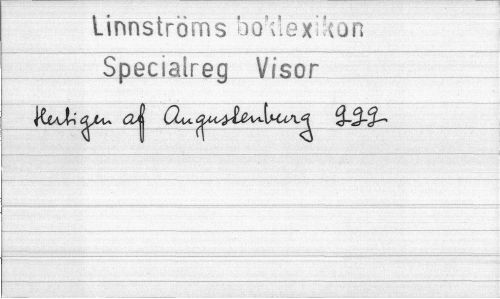 Linnströms boklexikon
Specialreg Visor
Hertigen af Augustenburg 999